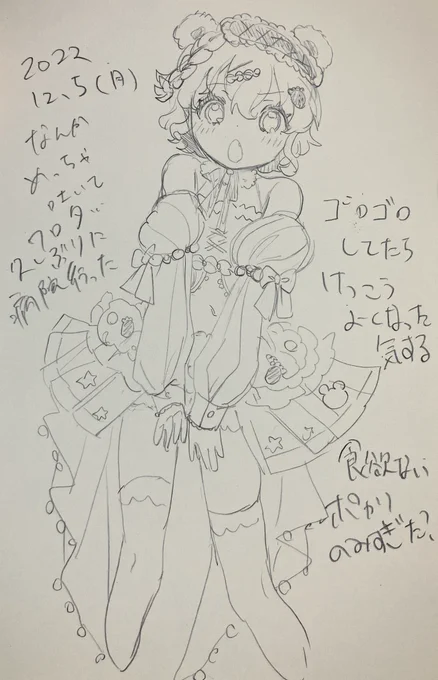 2022
12.5(月)
なんか
めっちゃ
吐いて
久しぶりに
病院行った
ゴロゴロ
してたら
けっこう
よくなった
気する
食欲ない
ポカリ
のみすぎた?